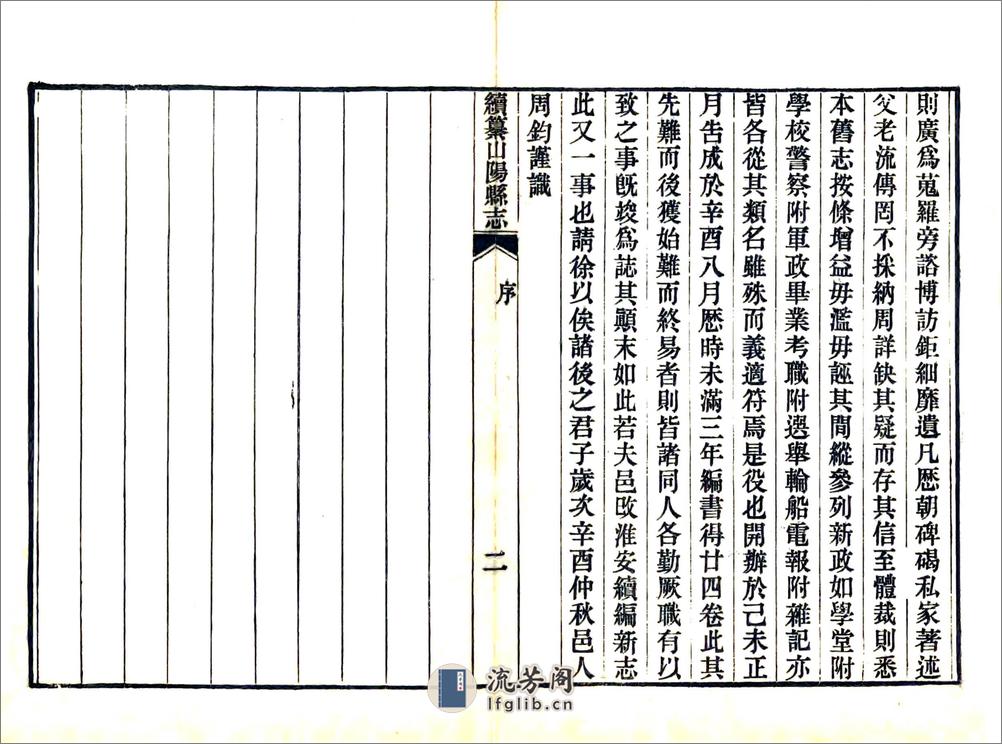 則廣爲蒐羅旁諮博訪鉅細靡遺凡歷朝碑碣私家著述
父老流傳罔不採納周詳缺其疑而存其信至體裁則悉
本舊志按條增益毋濫毋誣其間縱參列新政如學堂附
學校警察附軍政畢業考職附選舉輪船電報附雜記亦
皆各從其類名雖殊而義適符焉是役也開辦於己未正
月吿成於辛酉八月歷時未滿三年編書得廿四卷此其
先難而後獲始難而終易者則皆諸同人各勤厥職有以
致之事旣竣爲誌其顚末如此若夫邑改淮安續編新志
此又一事也請徐以俟諸後之君子歲次辛酉仲秋邑人
周鈞謹識
續纂山陽縣志
序
二
流芳阁
lfglib.cn